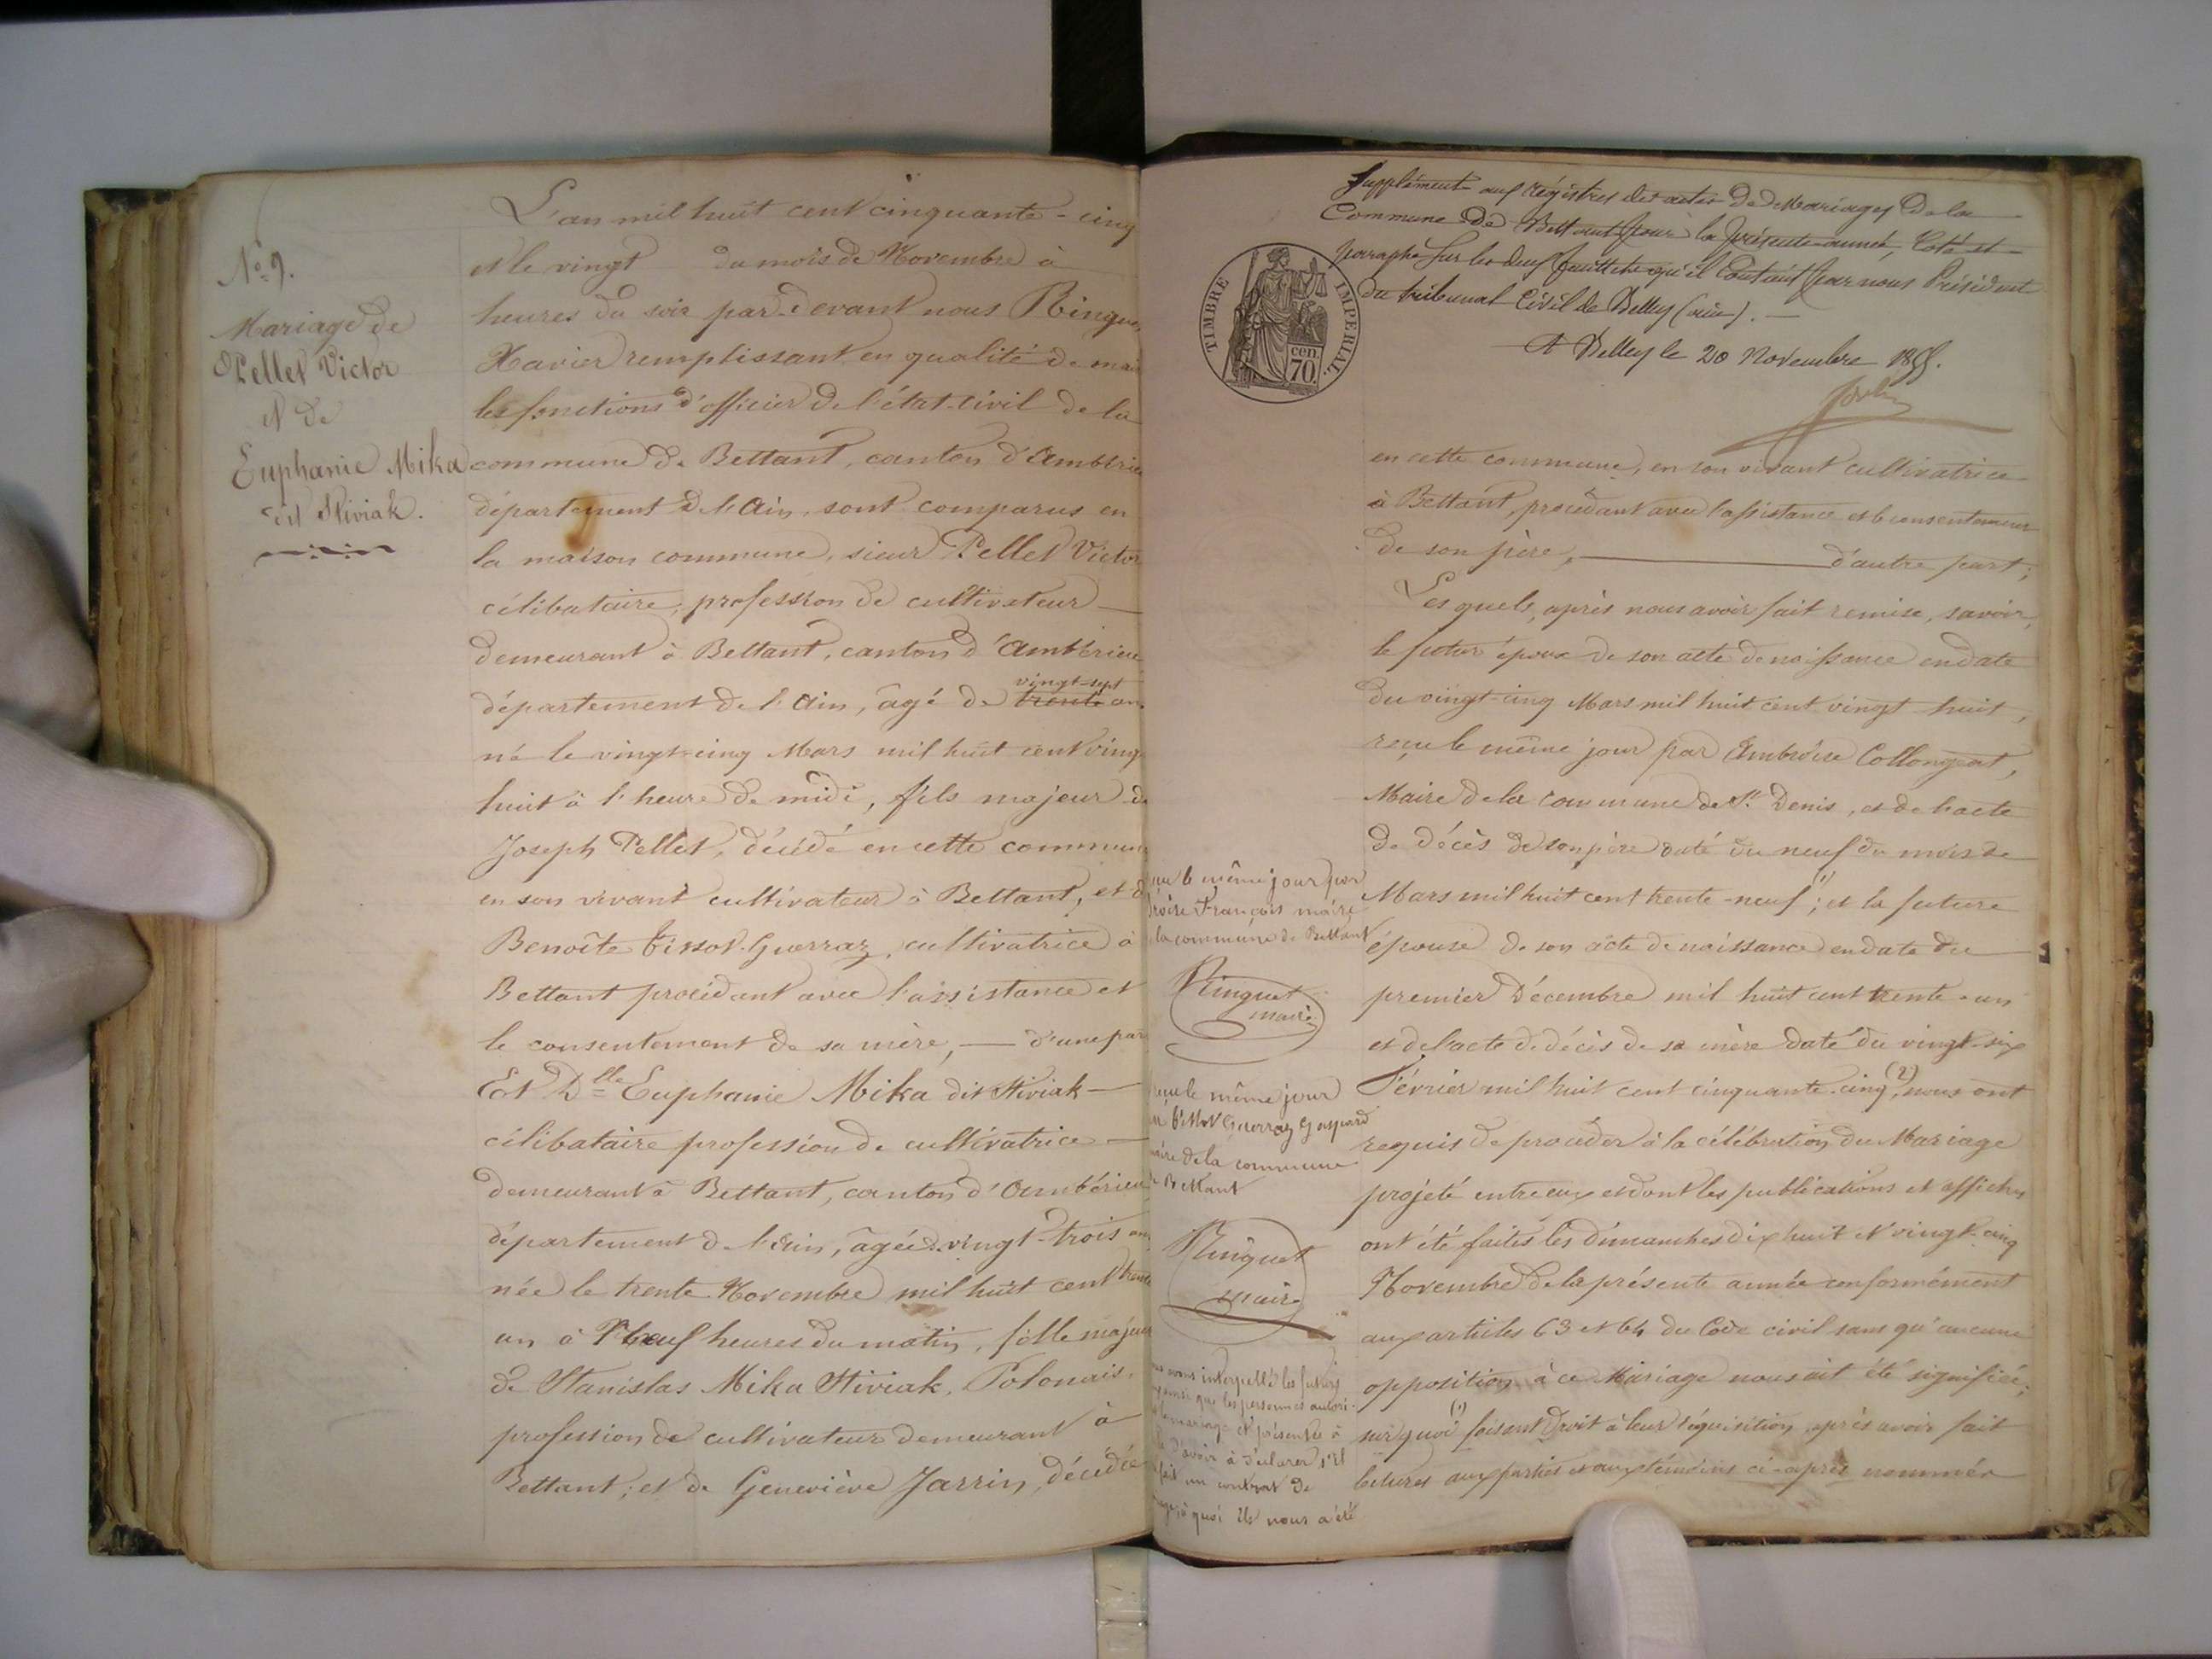 N.º 9.
Mariage de
Pellet Victor
et de
Euphanie Mika
dit Stiviak.
L'an mil huit cent cinquante-cinq
et le vingt du mois de Novembre à
heures du soir par-devant nous Ringue
Xavier remplissant en qualité de mai
les fonctions d'officier de l'état-civil de la
commune de Bettant, canton d'Ambérieu
département de l'Ain, sont comparus en
la maison commune, sieur Pellet Victor
célibataire, profession de cultivateur
demeurant à Bettant, canton d'Ambérieu
vingt-sept
département de l'Ain, âgé de trente an
né le vingt-cinq Mars mil huit cent ving
huit à l'heure de midi, fils majeur de
Joseph Pellet, décédé en cette commune
en son vivant cultivateur à Bettant, et d
Benoîte Tissot-Guerraz, cultivatrice à
Bettant procédant avec l'assistance et
le consentement de sa mère, — d'une par
Et D.lle Euphanie Mika dit Stiviak
célibataire profession de cultivatrice
demeurant à Bettant, canton d'Ambérieu
département de l'Ain, âgée de vingt-trois an
née le trente Novembre mil huit cent trente
un à Neuf heures du matin, fille majeu
de Stanislas Mika Stiviak, Polonais,
profession de cultivateur demeurant à
Bettant; et de Geneviève Jarrin, décédée
Supplément aux régistres des actes de Mariages de la
Commune de Bettant pour la présente année, Coté et
paraphé sur les deux feuillets qu'il Contient par nous Président
du tribunal Civil de Belley (ain). —
A Belley le 20 Novembre 1855.
TIMBRE IMPERIAL.
cen.
70.
en cette commune, en son vivant cultivatrice
à Bettant, procédant avec l'assistance et le consentement
de son père, — d'autre part;
Les quels, après nous avoir fait remise, savoir,
le futur époux de son acte de naissance en date
du vingt-cinq Mars mil huit cent vingt huit,
reçu le même jour par Ambroise Collongeat,
Maire de la commune de St. Denis, et de l'acte
de décès de son père daté du neuf du mois de
Mars mil huit cent trente-neuf (1); et la future
épouse de son acte de naissance en date du
premier Décembre mil huit cent trente-un
et de l'acte de décès de sa mère daté du vingt-six
Février mil huit cent cinquante-cinq (2), nous ont
requis de procéder à la célébration du Mariage
projeté entre eux et dont les publications et affiches
ont été faites les dimanches dix huit et vingt-cinq
Novembre de la présente année conformément
aux articles 63 et 64 du Code civil sans qu'aucune
opposition à ce Mariage nous ait été signifiée;
sur quoi (1) faisant droit à leur réquisition, après avoir fait
lectures aux parties et aux témoins ci-après nommés
çu le même jour par
François maire
la commune de Bettant
Ringuet
maire
reçu le même jour
Tissot Guerraz Gaspard
maire de la commune
Bettant
Ringuet
maire
avons interpellé les futurs
ainsi que les personnes autori-
le mariage et présentes à
d'avoir à déclarer s'il
fait un contrat de
à quoi ils nous a été